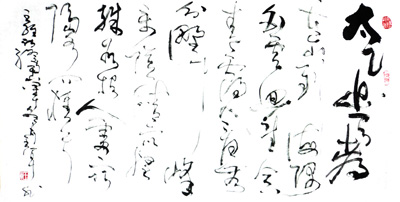 太乙近天都
連山到海隅
白雲迴望合
青靄入看無
分野中峰
變陰晴眾壑
殊欲投人處宿
隔水問樵夫